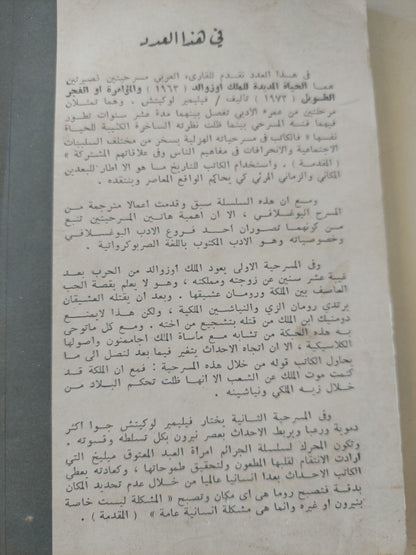 في هذا العدد
في هذا العدد نقدم للقارىء العربي مسرحيتين قصيرتين
هما الحياة المديدة للملك اوزوالد (١٩٦٣) والزامرة او الفجر
الطويل (١٩٧٣) تأليف / فيليمير لوكيتش ، وهما تمثلان
مرحلتين من عمره الأدبي تفصل بينهما مدة عشر سنوات تطور
فيهما فنه المسرحي بينما ظلت نظرته الساخرة الكئيبة للحياة
نفسها « فالكاتب في مسرحياته الهزلية يسخر من مختلف السلبيات
الاجتماعية والانحرافات في مفاهيم الناس وفي علاقاتهم المشتركة »
( المقدمة ) . واستخدام الكاتب للتاريخ ما هو الا اطار للبعدين
المكاني والزماني المرئي كي يحاكم الواقع المعاصر وينتقده .
ومع ان هذه السلسلة سبق وقدمت اعمالا مترجمة من
المسرح اليوغسلافي ، الا ان اهمية هاتين المسرحيتين تنبع
من كونهما تصوران احد فروع الادب اليوغسلافي
وخصوصياته وهو الادب المكتوب باللغة الصربوكرواتية .
وفي المسرحية الاولى يعود الملك اوزوالد من الحرب بعد
غيبة عشر سنين عن زوجته ومملكته ، وهو لا يعلم بقصة الحب
العاصف بين الملكة ورومان عشيقها . وبعد ان يقتله العشيقان
يرتدي رومان الزي والنياشين الملكية ، ولكن هذا لايمنع
دومنيك ابن الملك من قتله بتشجيع من اخته . ومع كل ماتوحي
به هذه الحبكة من تشابه مع مأساة الملك اجاممنون واصولها
الكلاسيكية ، الا ان اتجاه الاحداث يتغير فيما بعد لنصل الى ما
يحاول الكاتب قوله من خلال هذه المسرحية : فمع ان الملكة قد
كتمت موت الملك عن الشعب الا انها ظلت تحكم البلاد من
خلال زيه الملكي ونياشينه .
وفي المسرحية الثانية يختار فيليمير لوكيتش جوا اكثر
دموية ورعبا ويربط الاحداث بعصر نيرون بكل تسلطه وقسوته .
وتكون المحرك لسلسلة الجرائم امرأة العبد المعتوق ميليخ التي
ارادت الانتقام لقلبها المطعون ولتحقيق طموحاتها ، وكعادته يعطي
الكاتب الاحداث بعدا انسانيا عالميا من خلال عدم تحديد المكان
بدقة فتصبح روما هى اى مكان وتصبح « المشكلة ليست خاصة
بنيرون او غيره وانما هى مشكلة انسانية عامة » ( المقدمة ) .